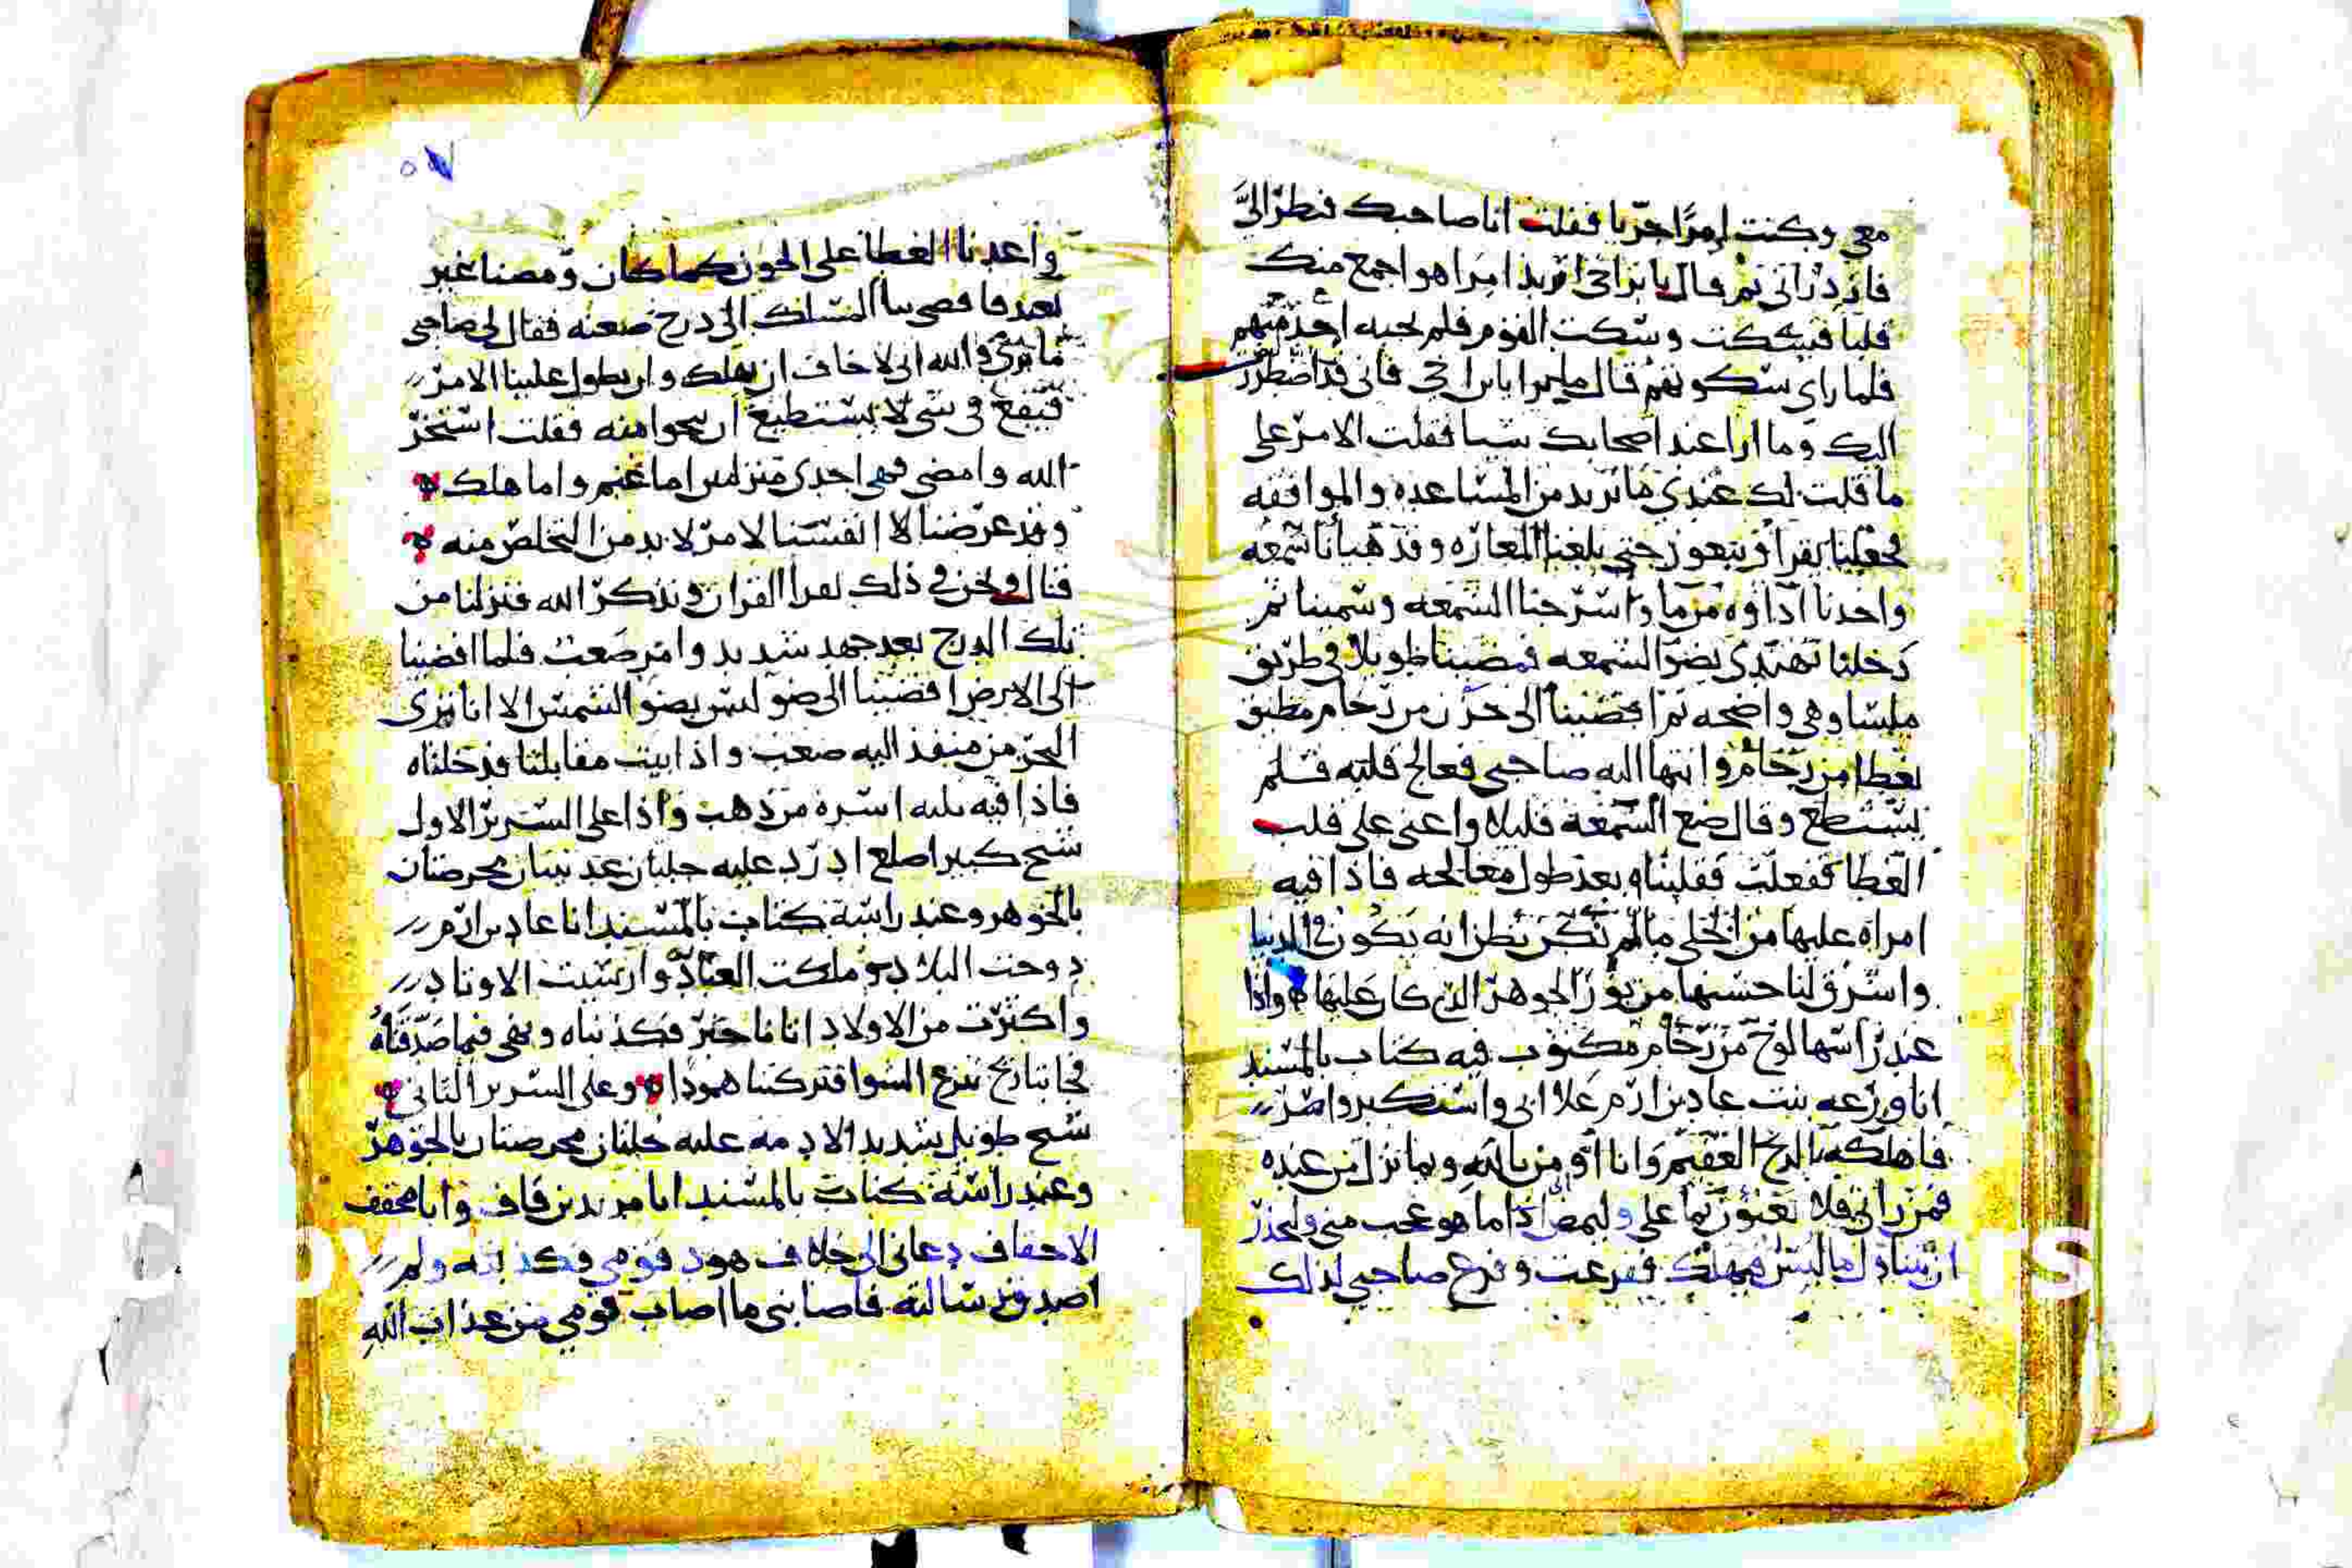 معي وكنت امرا حريا فقلت انا صاحبك فنظر اليَّ
فازدراني ثم قال يا بن اخي اريد امرا هو اجمع منك
قلبا فسكت وسكت القوم فلم يجبه احد منهم
فلما راى سكوتهم قال هلم يا بن اخي فاني قد اضطررت
اليك وما ارا عند اصحابك شيا فقلت الامر على
ما قلت لك عندي ما تريد من المساعده والموافقه
فجعلنا نقرا ونتعوذ حتى بلغنا المغاره وقد هيانا شمعه
واخدنا اداوه من ما واسرجنا الشمعه وسمينا ثم
دخلنا نهتدي بضو الشمعه فمضينا طويلا في طريق
ملسا وهي واضحه ثم افضينا الى حوض من رخام مطبق
بغطا من رخام وانتها اليه صاحبي فعالج قلبه فلم
يستطع وقال ضع الشمعه قليلا واعني على قلب
الغطا ففعلت فقلبناه بعد طول معالجه فاذا فيه
امراه عليها من الحلي ما لم نكن نظن انه يكون في الدنيا
واشرق لنا حسنها من نور الجوهر الذي كان عليها واذا
عند راسها لوح من رخام مكتوب فيه كتاب بالمسند
انا ورعه بنت عاد بن ارم علا ابي واستكبر واصر
فاهلكه بالريح العقيم وانا اومن بالله وبما نزل من عنده
فمن راني فلا يعثون بما علي وليمض اذا ما هو عجب مني وليحذر
ان يتناول ما ليس فيهلك ففزعت وفزع صاحبي لذلك
٥٧
واعدنا الغطا على الحوض كما كان ومضنا غير
بعيد فافضى بنا المسلك الى درج صعبه فقال لي صاحبي
ما ترى والله اني لا خاف ان نهلك وان يطول علينا الامر
فنقع في شي لا نستطيع ان ننجوا منه فقلت استخر
الله وامضي فهي احدى منزلتين اما غنم واما هلك
وقد عرضنا لا انفسنا لامر لا بد من التخلص منه
قال ونحن في ذلك نقرا القران ونذكر الله فنزلنا من
تلك الدرج بعد جهد شديد وامر صعب فلما افضينا
الى الارض افضينا الى ضو ليس بضو الشمس الا انا نرى
البحر من منفذ اليه صعب واذا بيت مقابلنا فدخلناه
فاذا فيه ثلثه اسره من ذهب واذا على السرير الاول
شيخ كبير اصلع ادرد عليه حلتان عدنيتان محرضتان
بالجوهر وعند راسه كتاب بالمسند انا عاد بن ارم
دوخت البلاد وملكت العباد وارسيت الاوتاد
واكثرت من الاولاد اتانا خبر فكذبناه ونهى فما صدقناه
فجاتنا ريح تنزع الشوا فتركتنا همودا وعلى السرير الثاني
شيخ طويل شديد الادمه عليه حلتان محرضتان بالجوهر
وعند راسه كتاب بالمسند انا مرثد بن قاف وانا محقف
الاحقاف دعاني الى خلاف هود قومي فكذبته ولم
اصدق رسالته فاصابني ما اصاب قومي من عذاب الله